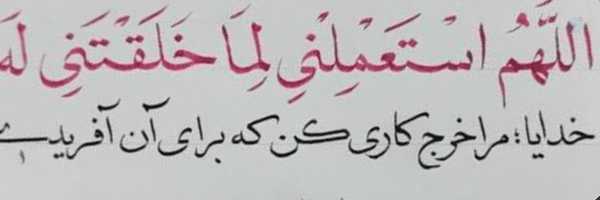 اللَّهُمَّ اسْتَعْمِلْنِي لِمَا خَلَقْتَنِي لَهُ
خدایا؛ مرا خرج کاری کن که برای آن آفریدے